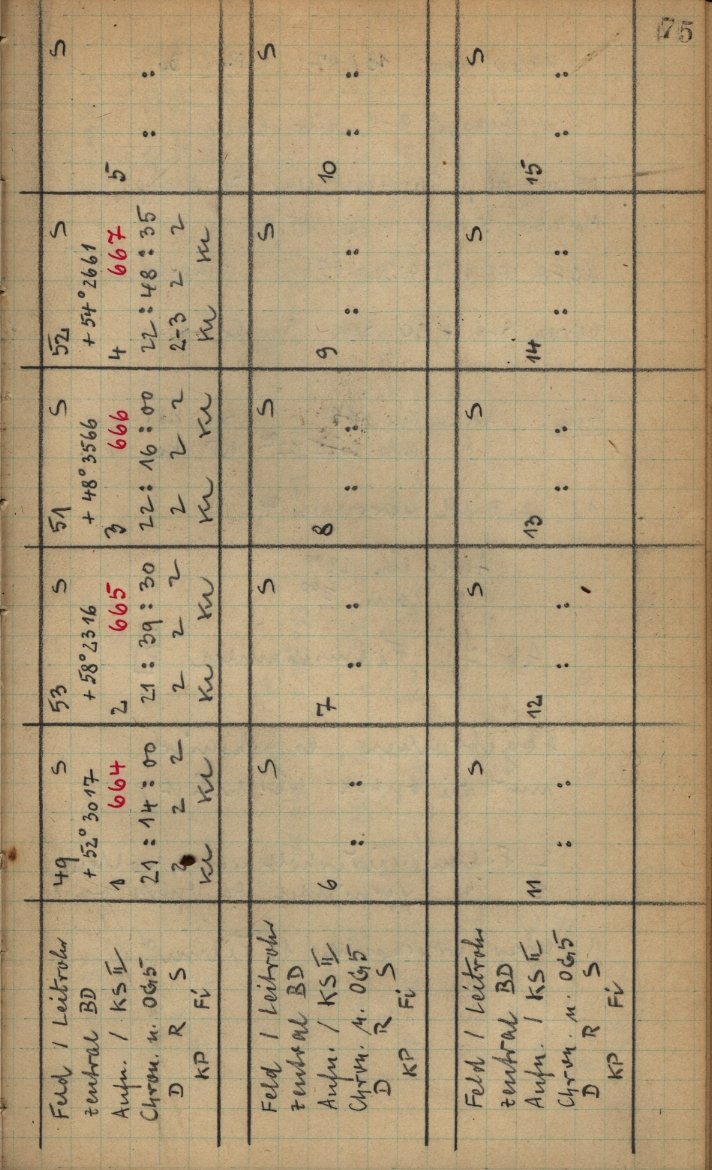 75
Feld / Leitrohr 49 S 53 S 51 S 52 S S
Zentral BD +52° 3017 +58° 2316 +48° 3566 +54° 2661
Aufn. / KS II 1 664 2 665 3 666 4 667 5
Chron. n. OG5 21 : 14 : 00 21 : 39 : 30 22 : 16 : 00 22 : 48 : 35 : :
D R S 2 2 2 2 2 2 2 2 2-3 2 2
KP Fi Ku Ku Ku Ku Ku Ku Ku Ku
Feld / Leitrohr S S S S S
Zentral BD
Aufn. / KS II 6 7 8 9 10
Chron. n. OG5 : : : : : : : : : :
D R S
KP Fi
Feld / Leitrohr S S S S S
Zentral BD
Aufn. / KS II 11 12 13 14 15
Chron. n. OG5 : : : : : : : : : :
D R S
KP Fi